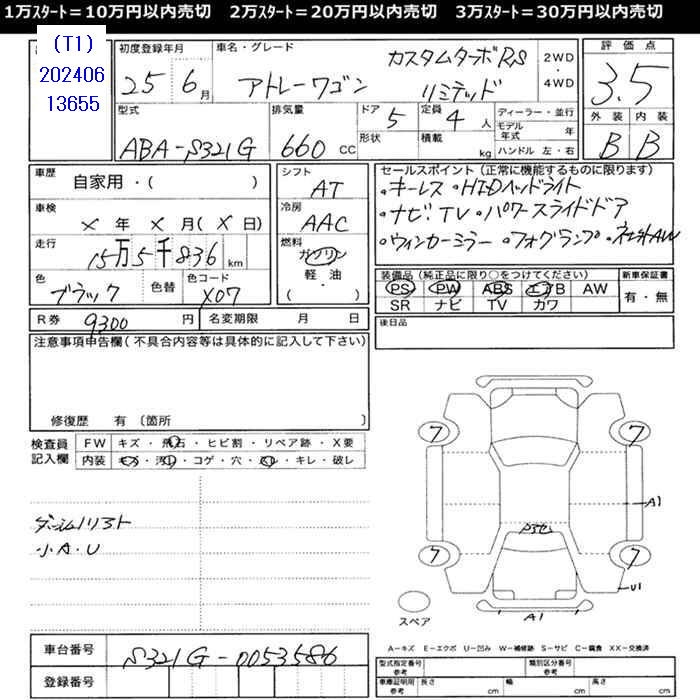 1万ｽﾀｰﾄ＝10万円以内売切　2万ｽﾀｰﾄ＝20万円以内売切　3万ｽﾀｰﾄ＝30万円以内売切
(T1)
202406
13655
初度登録年月
25 6月
車名・グレード
カスタムターボRS
アトレーワゴン リミテッド
2WD
・
4WD
評価点
3.5
外装 内装
B B
型式
ABA-S321G
排気量
660 CC
ドア 5
形状
定員 4 人
積載 kg
ディーラー・並行
モデル年式 年
ハンドル 左・右
車歴
自家用・( )
車検
× 年 × 月( × 日)
走行
15万5千836 km
色
ブラック
色替
色コード
X07
シフト
AT
冷房
AAC
燃料
ガソリン
軽・油
( )
セールスポイント(正常に機能するものに限ります)
・キーレス ・HIDヘッドライト
・ナビ TV ・パワースライドドア
・ウィンカーミラー ・フォグランプ ・社外AW
装備品(純正品に限り○をつけてください)
PS PW ABS エアB AW
SR ナビ TV カワ
新車保証書
有・無
R券 9300 円
名変期限 月 日
後日品
注意事項申告欄(不具合内容等は具体的に記入して下さい)
修復歴 有 〔箇所 〕
検査員
記入欄
FW キズ・飛石・ヒビ割・リペア跡・X要
内装 キズ・汚レ・コゲ・穴・スレ・キレ・破レ
小A.U
7 7
A1
7 7
U1
A1
スペア
A－キズ E－エクボ U－凹み W－補修跡 S－サビ C－腐食 XX－交換済
車台番号
S321G-0053586
登録番号
型式指定番号
参考
類別区分番号
参考
車庫証明用
参考
長さ cm 幅 cm 高さ cm